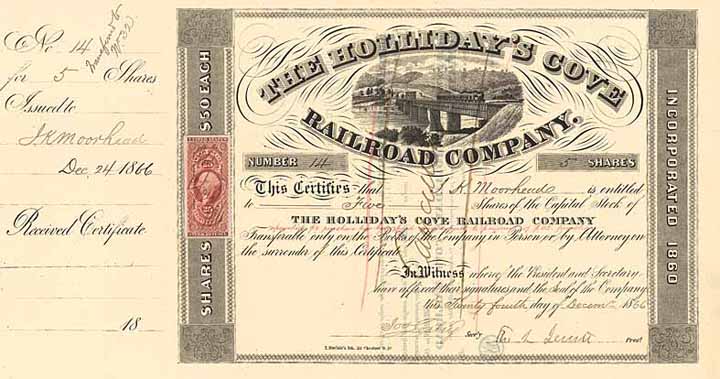 No. 14
for 5 Shares
Issued to
J.K. Moorhead
Dec. 24 1866
Received Certificate
18
$50 EACH
SHARES
THE HOLLIDAY'S COVE
RAILROAD COMPANY.
NUMBER 14
5 SHARES
This Certifies that J. K. Moorhead is entitled
to Five Shares of the Capital Stock of
THE HOLLIDAY'S COVE RAILROAD COMPANY
Transferable only on the Books of the Company in Person or by Attorney on
the surrender of this Certificate.
In Witness whereof the President and Secretary
have affixed their signatures and the Seal of the Company
this Twenty fourth day of Decem 1866
Secy.
Prest
INCORPORATED 1860